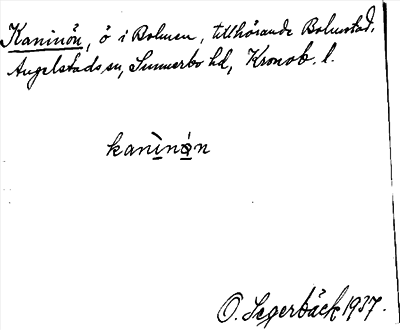 Kaninön, ö i Bolmen, tillhörande Bolmstad,
Angelstads sn, Sunnerbo hd, Kronob. l.
kanìnö́n
O. Segerbäck 1937.